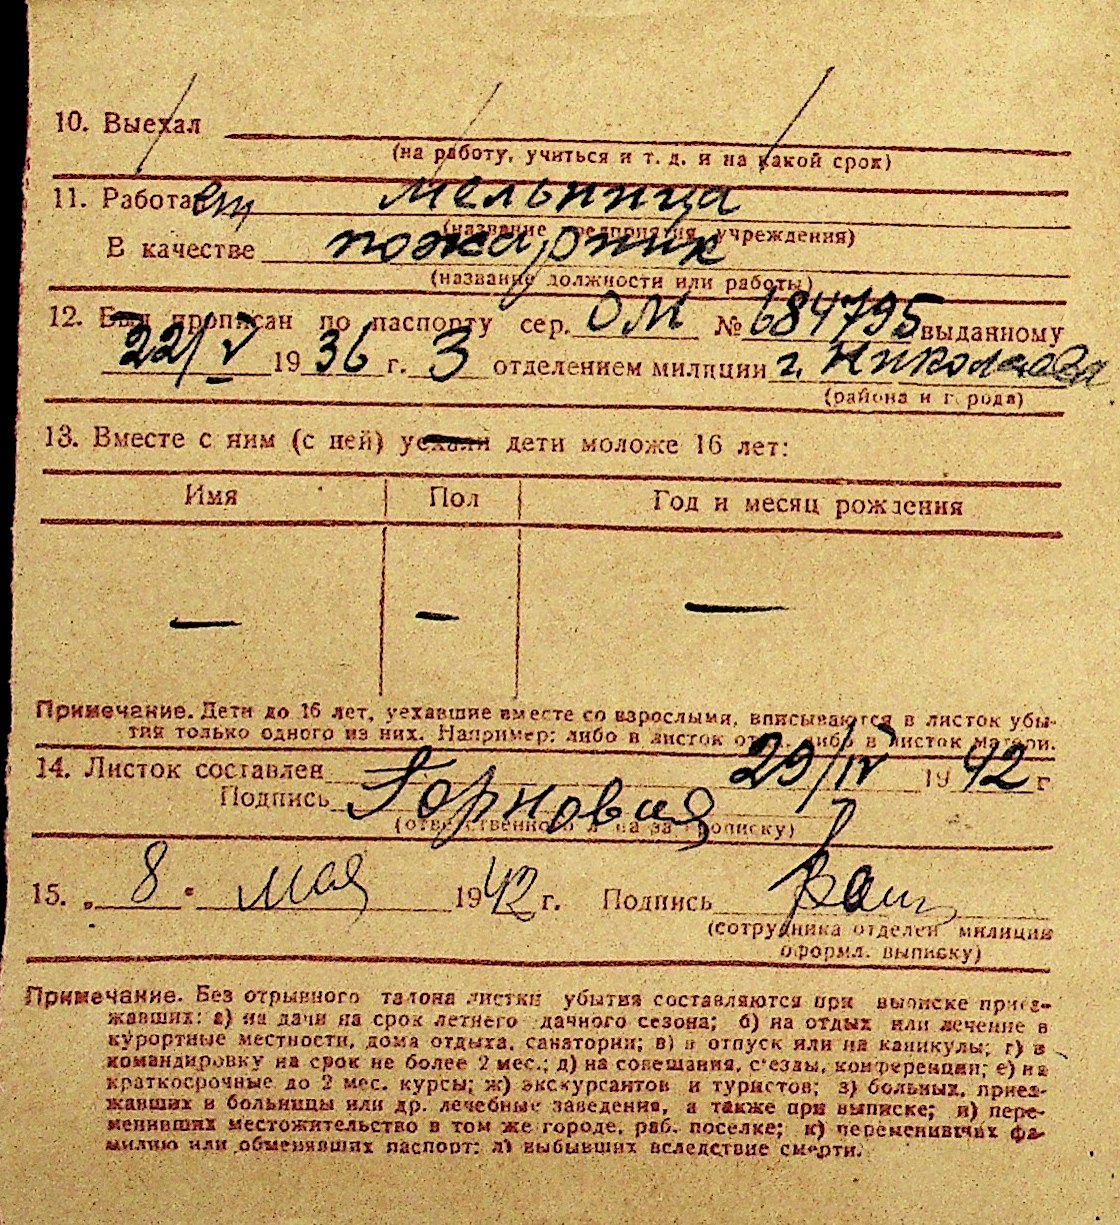 10. Выехал
(на работу, учиться и т. д. и на какой срок)
11. Работает мельница
(название предприятия, учреждения)
В качестве пожарник
(название должности или работы)
12. Был прописан по паспорту сер. ОМ № 684795 выданному
22/V 1936 г. 3 отделением милиции г. Николаева
(района и города)
13. Вместе с ним (с ней) уехали дети моложе 16 лет:
Имя Пол Год и месяц рождения
— — —
Примечание. Дети до 16 лет, уехавшие вместе со взрослыми, вписываются в листок убы-
тия только одного из них. Например: либо в листок отца, либо в листок матери.
14. Листок составлен 29/IV 1942 г
Подпись
(ответственного лица за прописку)
15. „ 8 " мая 1942 г. Подпись
(сотрудника отделен. милиции
оформл. выписку)
Примечание. Без отрывного талона листки убытия составляются при выписке приез-
жавших: а) на дачи на срок летнего дачного сезона; б) на отдых или лечение в
курортные местности, дома отдыха, санатории; в) в отпуск или на каникулы; г) в
командировку на срок не более 2 мес.; д) на совещания, с'езды, конференции; е) на
краткосрочные до 2 мес. курсы; ж) экскурсантов и туристов; з) больных, приез-
жавших в больницы или др. лечебные заведения, а также при выписке; и) пере-
менивших местожительство в том же городе, раб. поселке; к) переменивших фа-
милию или обменявших паспорт; л) выбывших вследствие смерти.